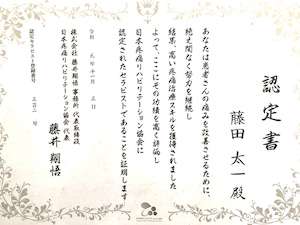 認定書
藤田 太一 殿
あなたは患者さんの痛みを改善させるために、
絶え間なく努力を継続し
結果、高い疼痛治療スキルを獲得されました
よって、ここにその功績を高く評価し
日本疼痛リハビリテーション協会に
認定されたセラピストであることを証明します
令和 元年 十一月 三日
株式会社 藤井翔悟 事務所 代表取締役
日本疼痛リハビリテーション協会 代表
藤井 翔悟
認定セラピスト登録番号